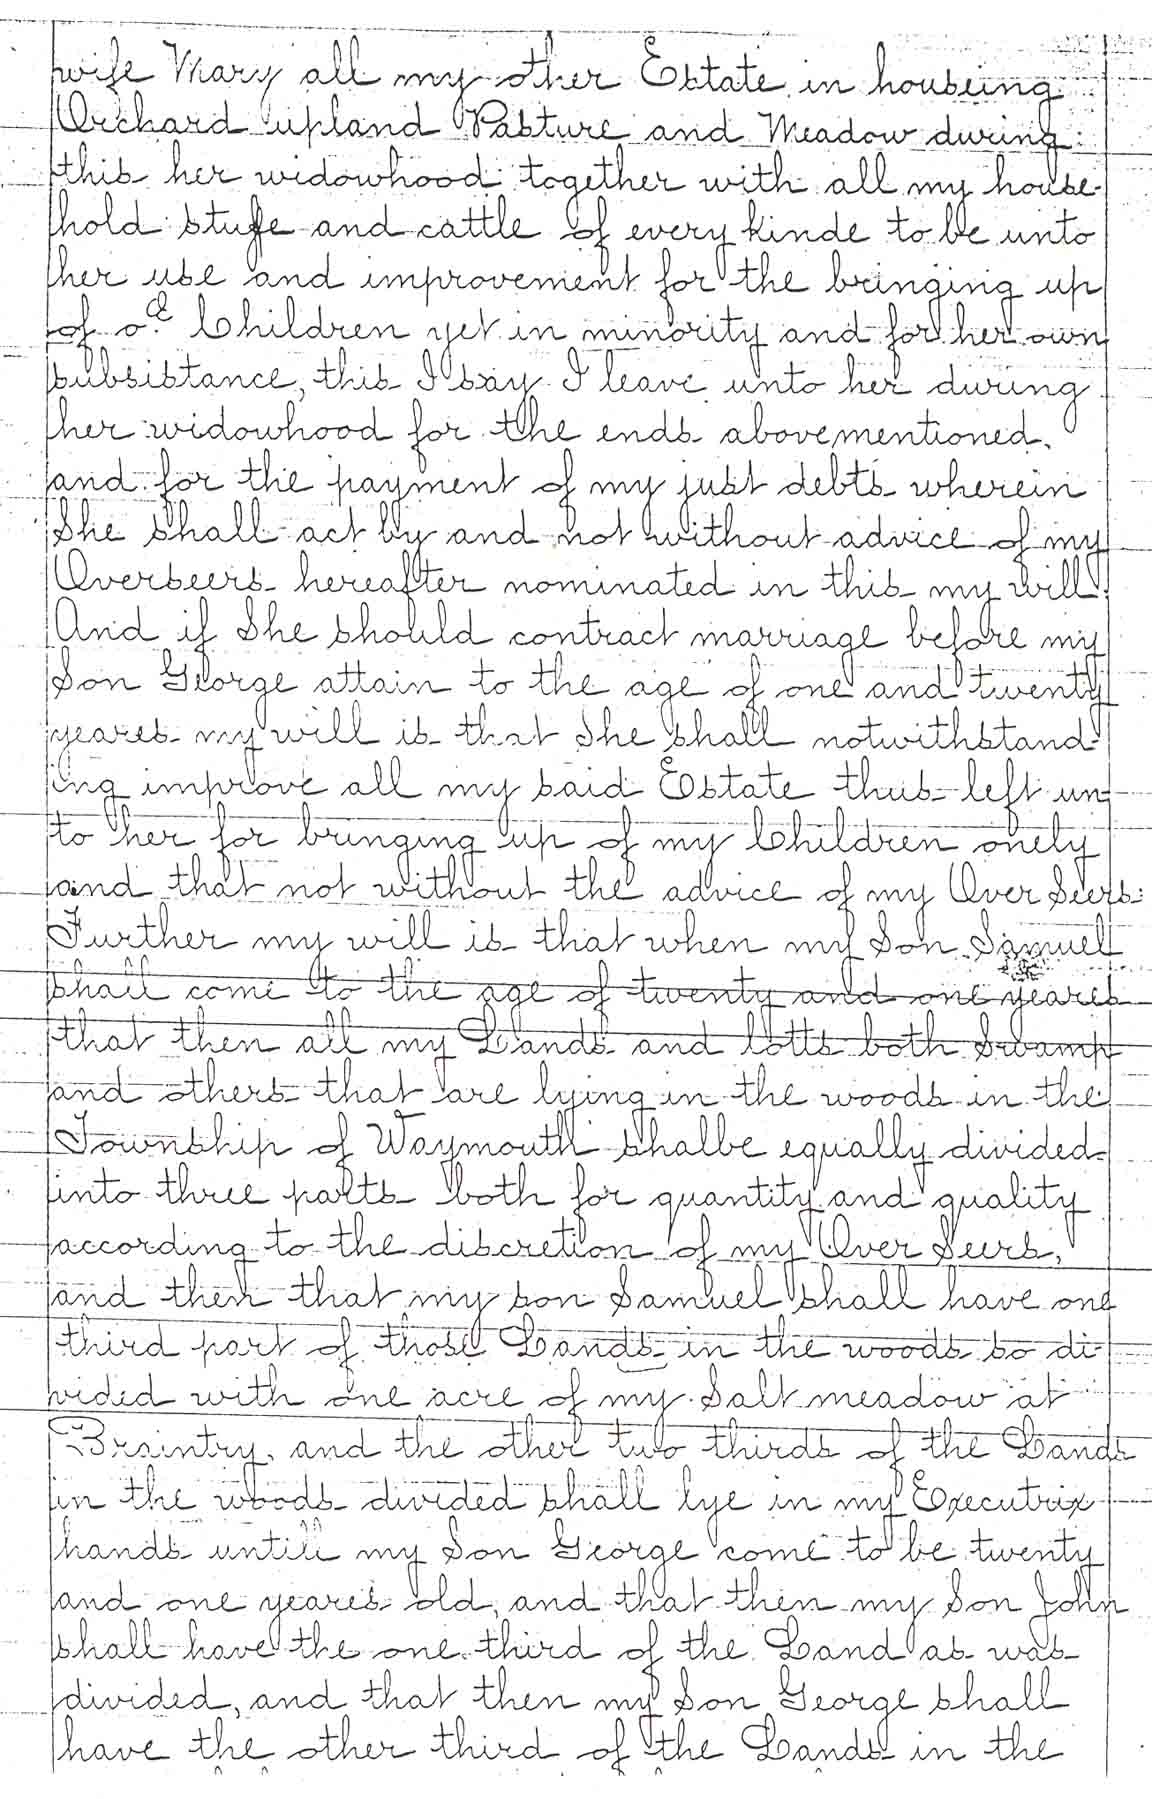 wife Mary all my other Estate in houseing
Orchard upland Pasture and Meadow during
this her widowhood together with all my house-
hold stuffe and cattle of every kinde to be unto
her use and improvement for the bringing up
of oE Children yet in minority and for her own
subsistance, this I say I leave unto her during
her widowhood for the ends abovementioned,
and for the payment of my just debts wherein
She shall act by and not without advice of my
Overseers hereafter nominated in this my will.
And if She should contract marriage before my
Son George attain to the age of one and twenty
yeares my will is that She shall notwithstand-
ing improve all my said Estate thus left un-
to her for bringing up of my Children onely
and that not without the advice of my Over Seers:
Further my will is that when my Son Samuel
shall come to the age of twenty and one yeares
that then all my Lands and lotts both Swamp
and others that are lying in the woods in the
Township of Waymouth shalbe equally divided
into three parts both for quantity and quality
according to the discretion of my Over Seers,
and then that my son Samuel shall have one
third part of those Lands in the woods so di-
vided with one acre of my Salt meadow at
Braintry, and the other two thirds of the Lands
in the woods divided shall lye in my Executrix
hands untill my Son George come to be twenty
and one yeares old, and that then my Son John
shall have the one third of the Land as was
divided, and that then my Son George shall
have the other third of the Lands in the